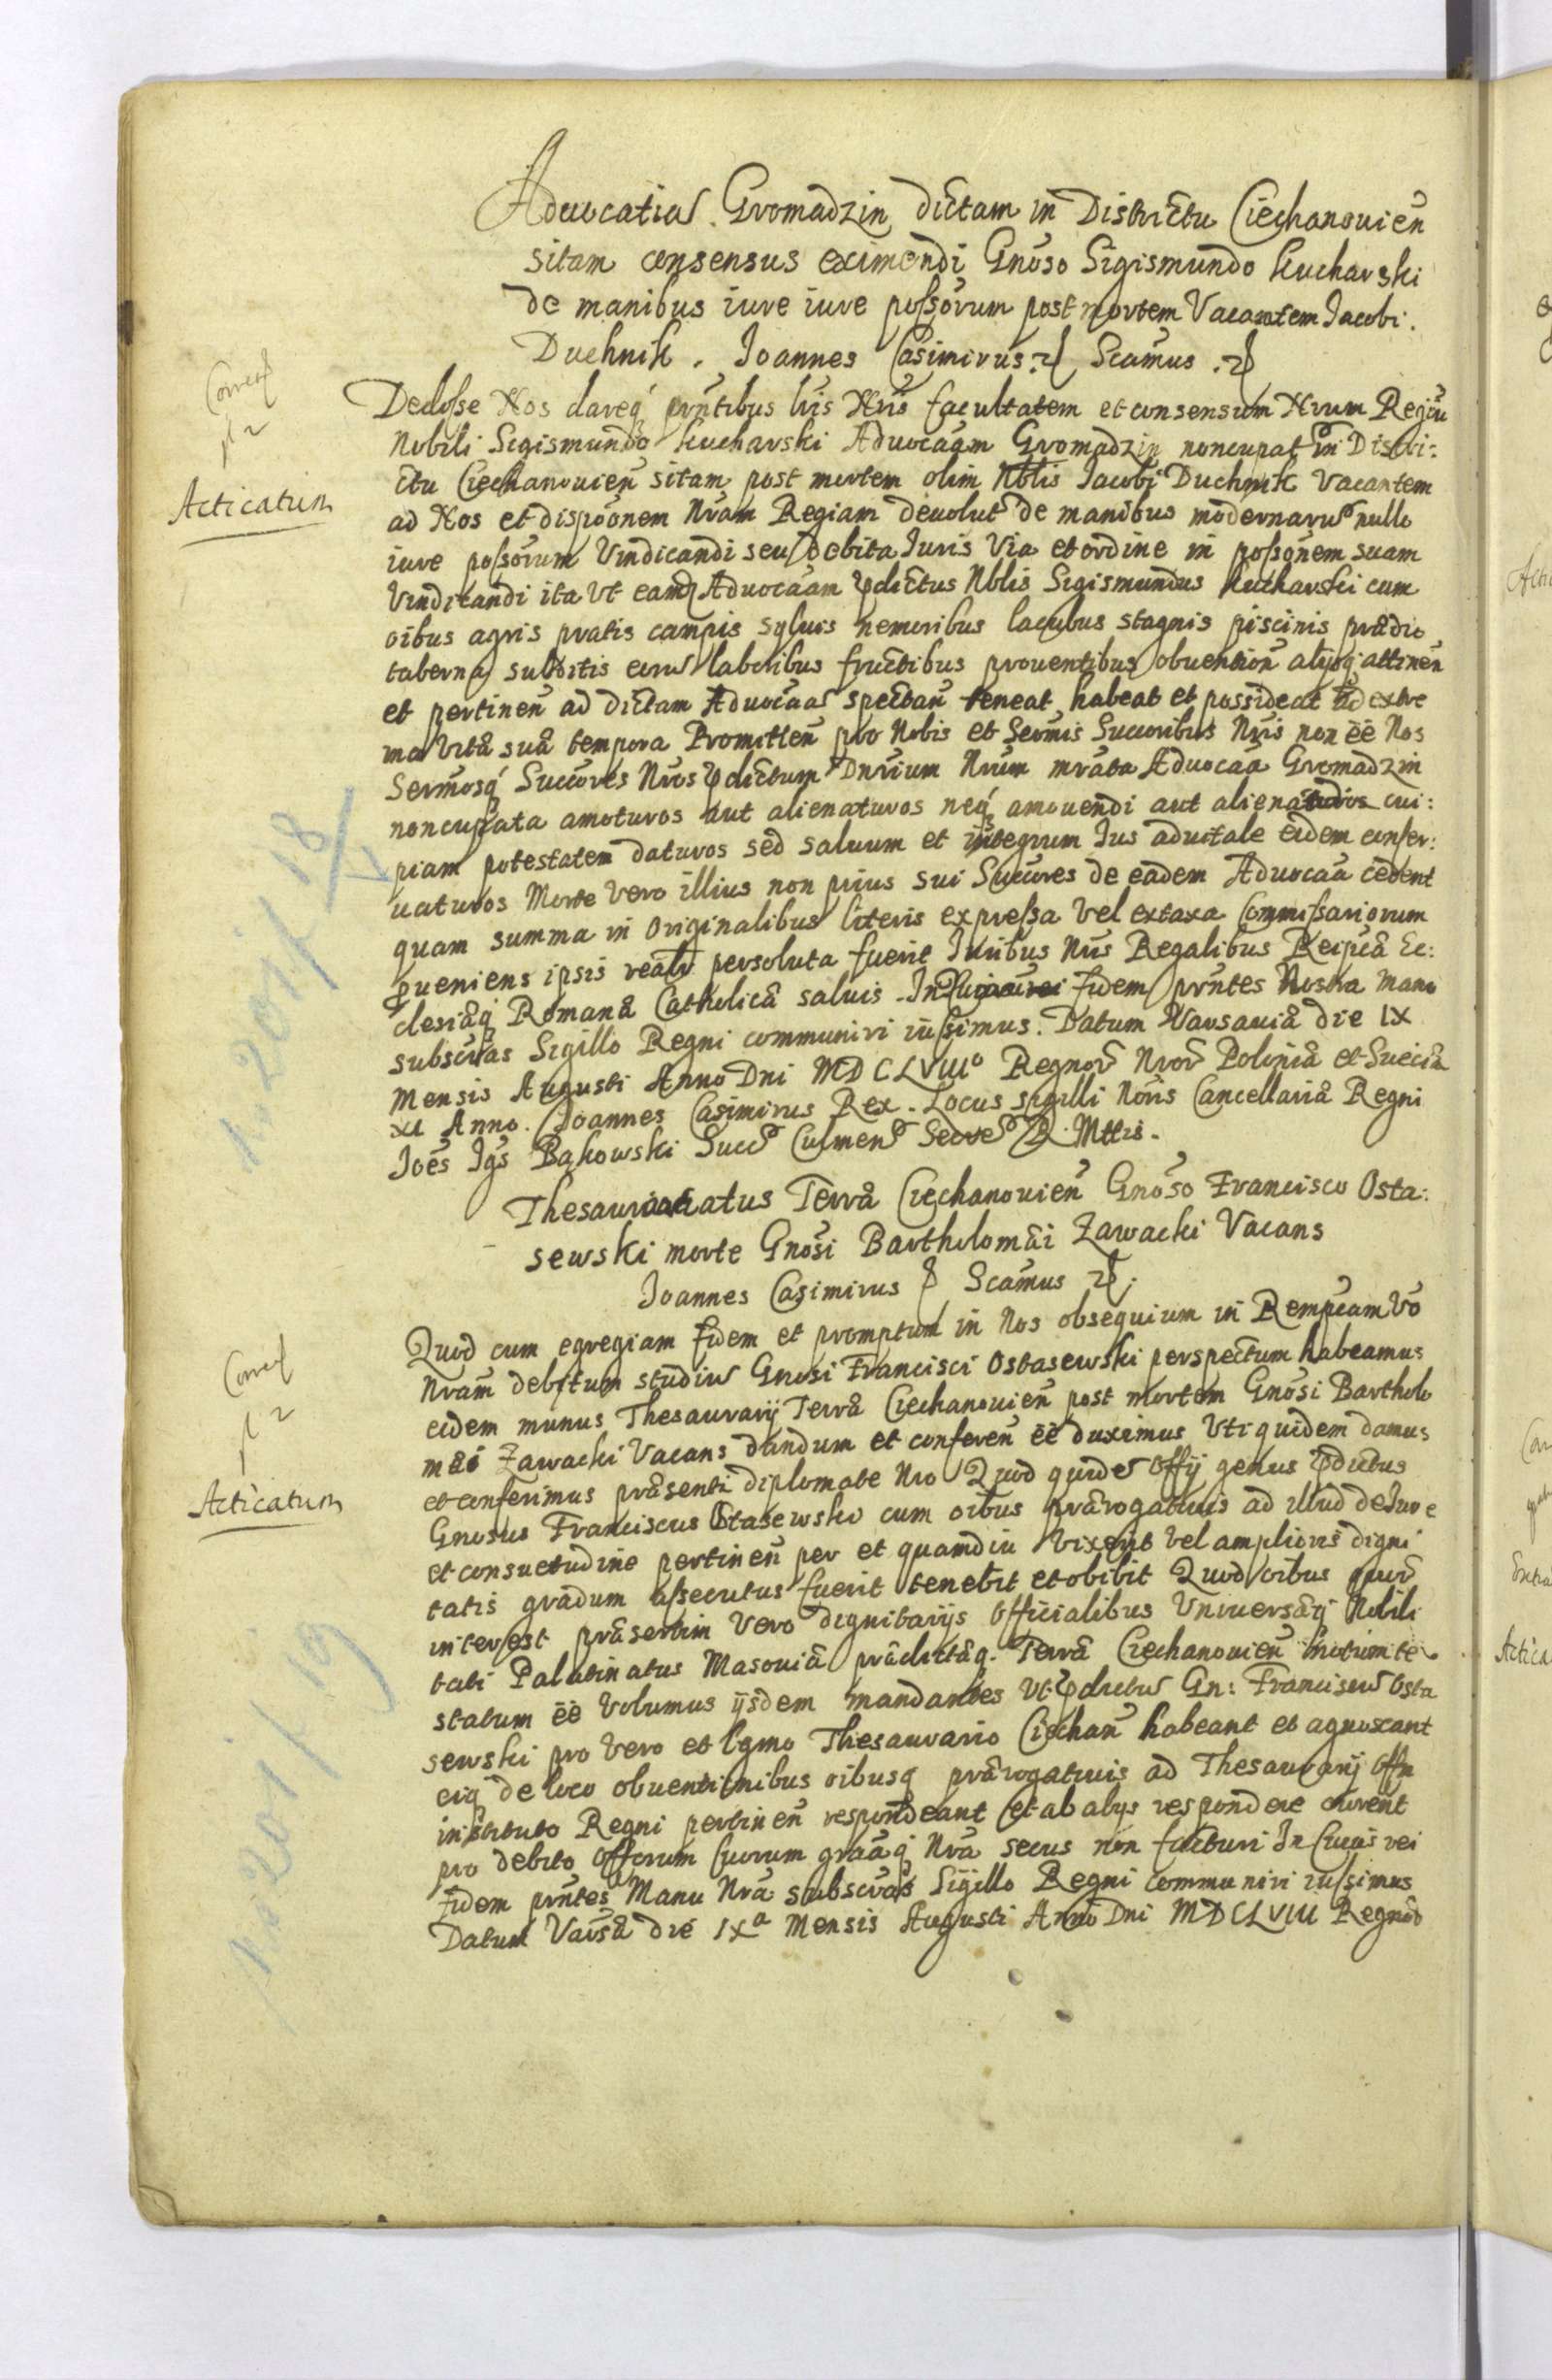 Aduocatiam Gromadzin dictam in Districtu Ciechanouień
sitam consensus eximendi Gnoso Sigismundo Kucharski
de manibus iure iure possorum post mortem Vacantem Jacobi
Duchnik. Joannes Casimirus Scamus
Dedisse Nos dareq prntibus lris Nris facultatem et consensum Nrum Regiu
Nobili Sigismundo Kucharski Aduocaam Gromadzin noncupat in Distri:
ctu Ciechanouień sitam post mortem olim Nblis Jacobi Duchnik vacantem
ad Nos et dispoonem Nram Regiam deuolut de manibus modernaru nullo
iure possorum Vindicandi seu debita Juris Via et ordine in possonem suam
Vindicandi ita Vt eamq Aduocaam pdictus Nblis Sigismundus Kucharski cum
oibus agris pratis campis syluis nemoribus lacubus stagnis piscinis prædio
taberna subditis eoru laboribus fructibus prouentibus obuention alijsq attineń
et pertineń ad dictam Aduocaa spectań teneat habeat et possideat ad extre
ma vitæ suæ tempora Promitteń pro Nobis et Sermis Succoribus Nris non ee Nos
Sermosq Succores Nros pdictum Nrum mrata Aduocaa Gromadzin
noncupata amoturos aut alienaturos neq amouendi aut alienandi cui:
piam potestatem daturos sed saluum et integrum Jus aduitale eidem conser:
uaturos Morte vero illius non prius sui Succores de eadem Aduocaa cedent
quam summa in originalibus literis expressa vel ex taxa Commissariorum
pueniens ipsis realr persoluta fuerit Juribus Nris Regalibus Reipcæ Ec:
clesiæq Romanæ Catholicæ saluis. In fidem prntes Nostra manu
subscrtas Sigillo Regni communiri iussimus. Datum Varsauiæ die IX
Mensis Augusti Anno Dni MDCLVIIIo Regnor Nror Poloniæ et Sueciæ
XI Anno. Joannes Casimirus Rex. Locus sigilli Noris Cancellariæ Regni
Joes Igs Bąkowski Succ Culmen Secre R. Mttis.
Correcl
pl 2
Acticatum
Thesaurariatus Terræ Ciechanouień Gnoso Francisco Osta:
sewski morte Gnosi Bartholomæi Zawacki Vacans
Joannes Casimirus Scamus
Quod cum egregiam fidem et promptum in Nos obsequium in Rempcam Vo
Nram debitum studiu Gnosi Francisci Ostasewski perspectum habeamus
eidem munus Thesaurarij Terræ Ciechanouień post mortem Gnosi Bartholo
mæi Zawacki Vacans dandum et confereń ee duximus Vti quidem damus
et conferimus præsenti diplomate Nro Quod quide offij genus pdictus
Gnosus Franciscus Ostasewski cum oibus prærogatiuis ad illud de Jure
et consuetudine pertineń per et quamdiu vixerit vel amplioris digni
tatis gradum assecutus fuerit tenebit et obibit Quod oibus quor
interest præsertim Vero dignitarijs officialibus Vniuersæq Nobili
tati Palatinatus Masouiæ prædictæq. Terræ Ciechanouień
statum ee volumus ijsdem mandantes vt pdictu Gn: Franciscu Osta
sewski pro vero et lgmo Thesaurario Ciechań habeant et agnoscant
eiq de loco obuentionibus oibusq prærogatiuis ad Thesaurarij offu
instituto Regni pertineń respondeant et ab alys respondere curent
pro debito offorum suorum graaq Nra secus non facturi In Cuius rei
fidem prntes Manu Nra subscras Sigillo Regni communiri iussimus
Datum Varsæ die IXa Mensis Augusti Anno Dni MDCLVIII Regnor
Correcl
pl 2
Acticatum